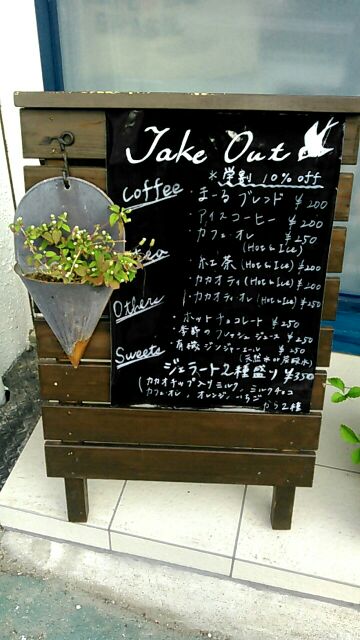 Take Out
*学割 10% off
Coffee
・まーるブレンド ¥200
・アイスコーヒー ¥200
カフェ・オレ ¥250
(Hot & Ice)
Tea
紅茶 (Hot & Ice) ¥200
カカオティ (Hot & Ice) ¥200
・カカオティ・オレ (Hot & Ice) ¥250
Others
・ホットチョコレート ¥250
・季節のフレッシュジュース ¥250
・有機ジンジャーエール ¥250
(天然水 or 炭酸水)
Sweets
ジェラート2種盛り ¥350
(カカオチップ入りミルク、ミルクチョコ
カフェオレ、オレンジ、いちご
から2種